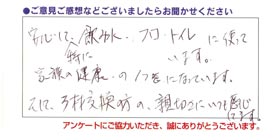 ●ご意見ご感想などございましたらお聞かせください
安心して、飲み水、フロ・トイレに使って
特に います。
家族の健康の1つになっています。
そして、3ヶ月交換の方の、親切にいつも感じ
てます。
アンケートにご協力いただき、誠にありがとうございます。